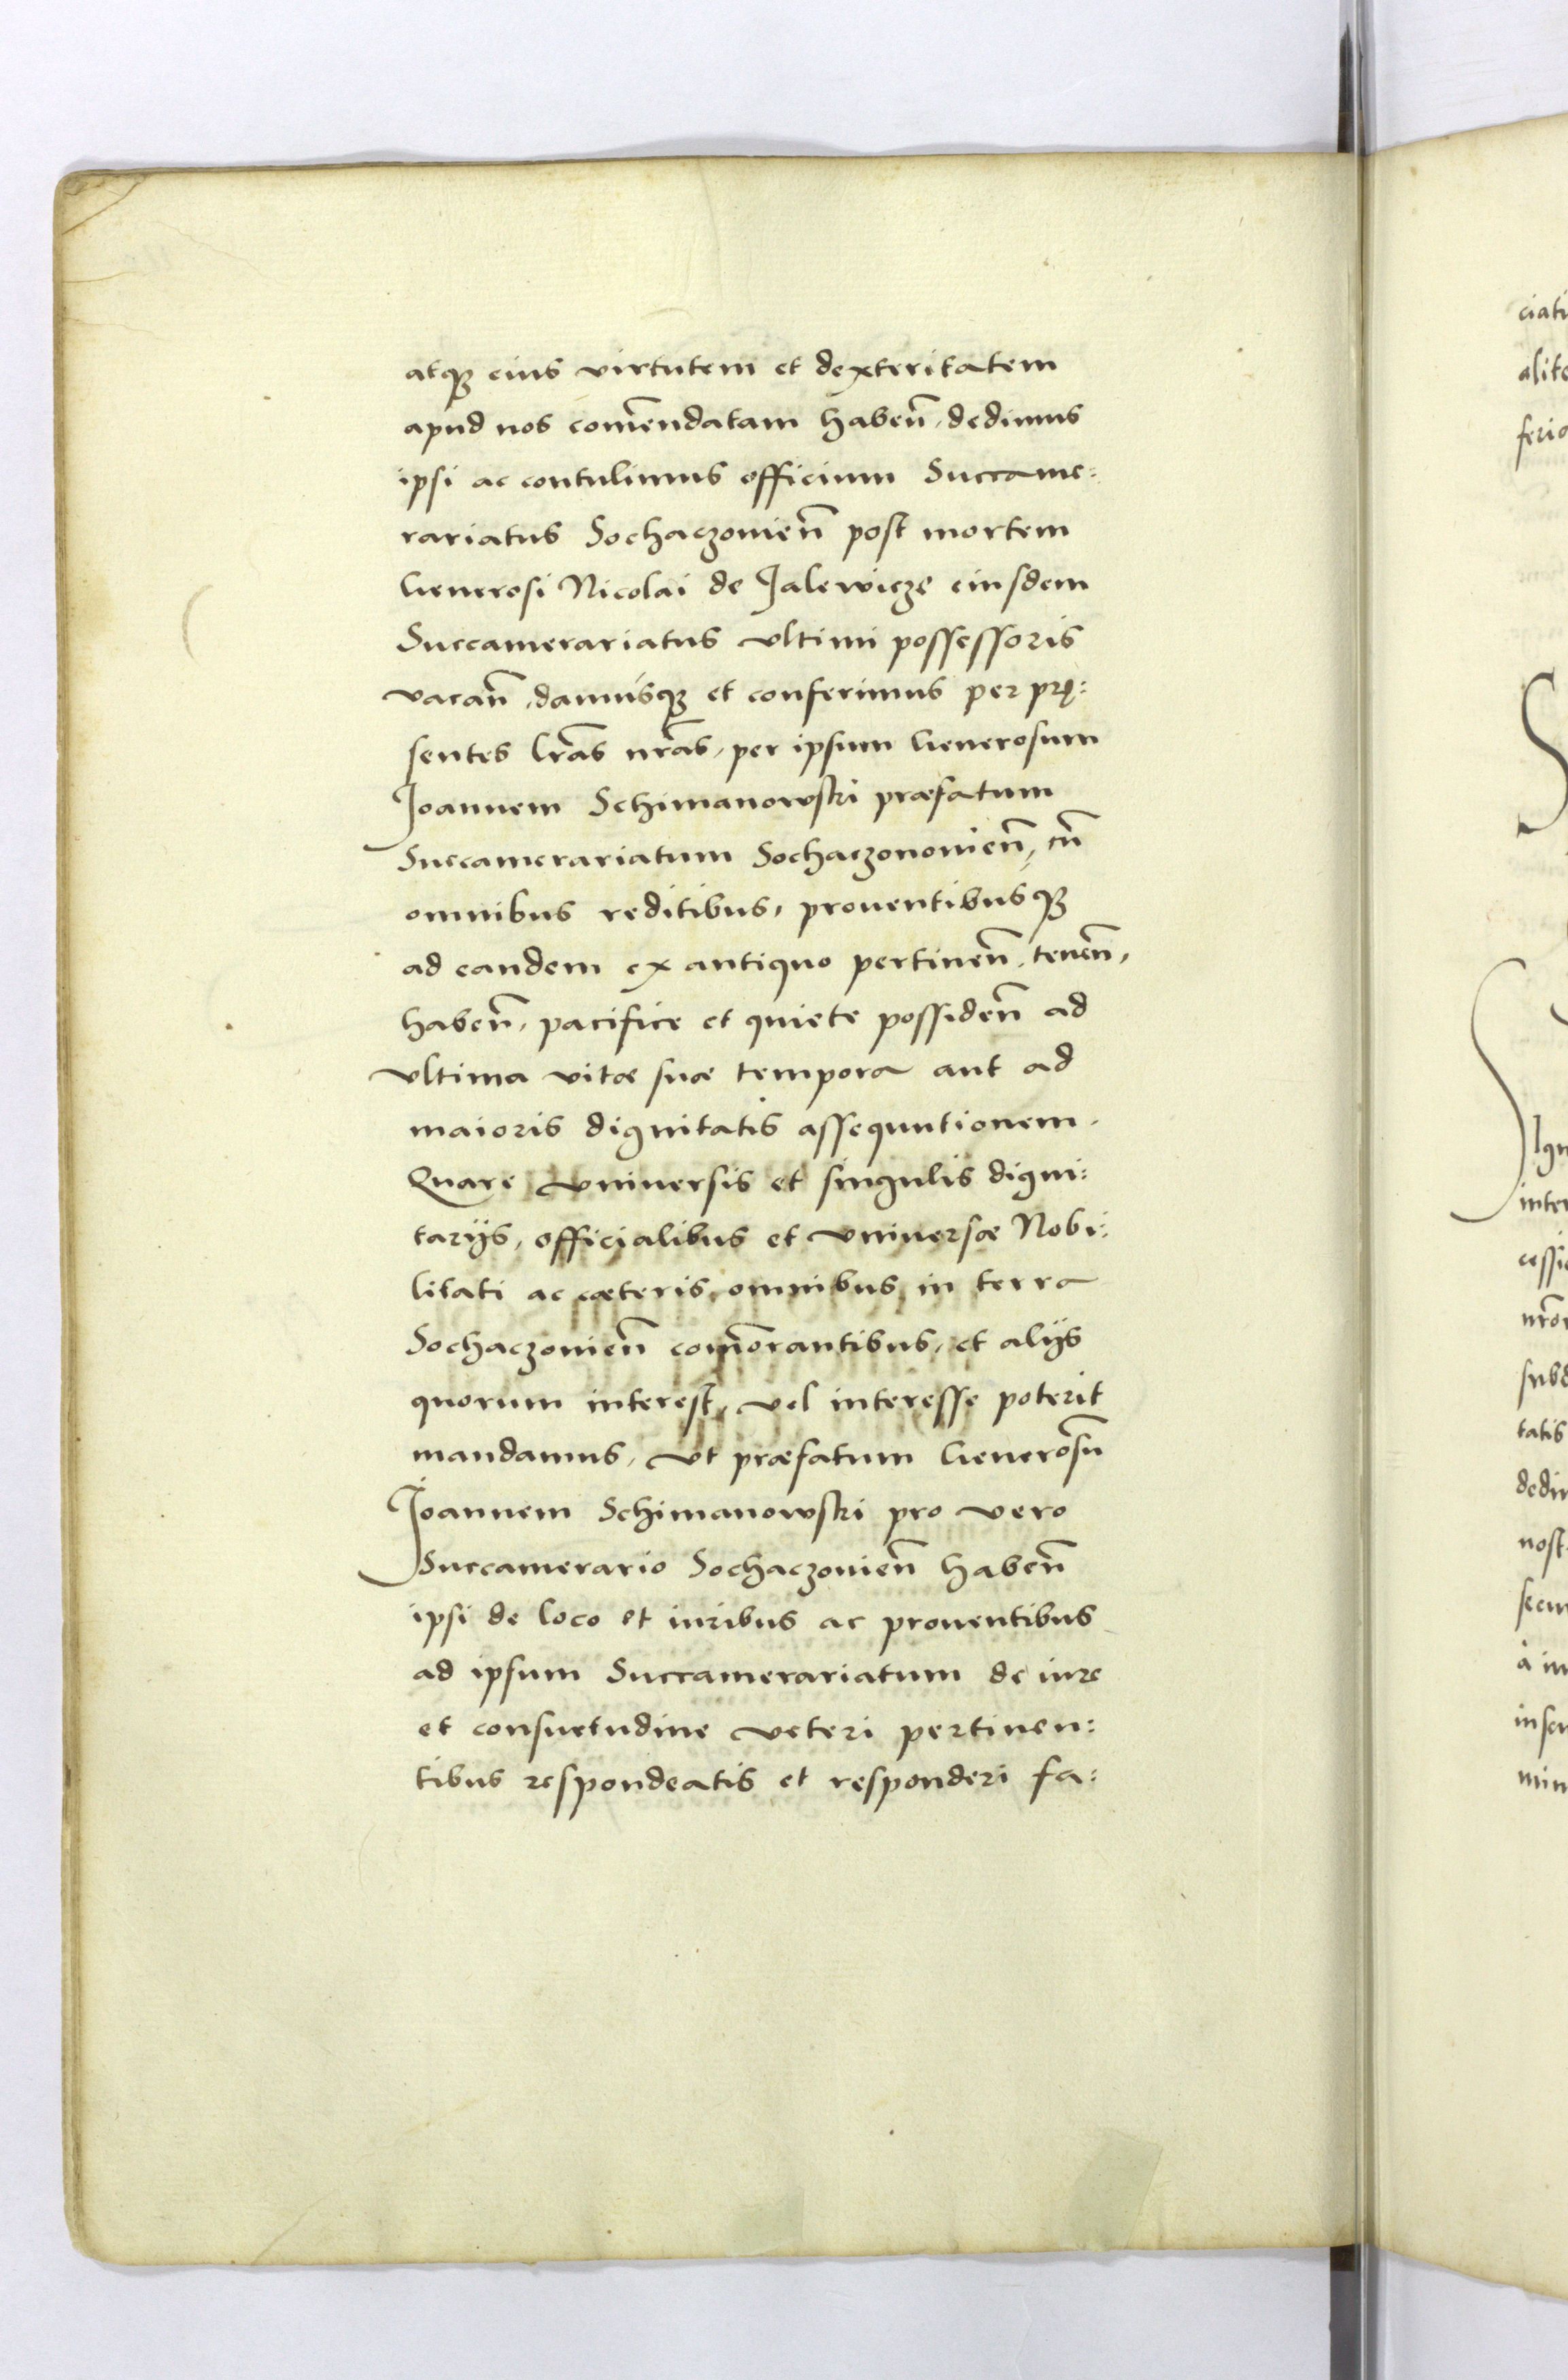 atq3 eius virtutem et dexteritatem
apud nos com̄endatam haben̄, dedimus
ipsi ac contulimus officium Succame:
rariatus Sochaczouien̄ post mortem
Generosi Nicolai de Jalewicze eiusdem
Succamerariatus vltimi possessoris
vacan̄, damusq3 et conferimus per prę:
sentes lr̄as nr̄as, per ipsum Generosum
Joannem Schimanowski præfatum
Succamerariatum Sochaczonouien̄, cū
omnibus reditibus, prouentibusq3
ad eandem ex antiquo pertinen̄, tenen̄,
haben̄, pacifice et quiete possiden̄ ad
vltima vitæ suæ tempora aut ad
maioris dignitatis assequutionem.
Quare vniuersis et singulis digni:
tarijs, officialibus et vniuersæ Nobi:
litati ac cæteris omnibus in terra
Sochaczouien̄ com̄orantibus, et alijs
quorum interest, vel interesse poterit
mandamus, vt præfatum Generosū
Joannem Schimanowski pro vero
Succamerario Sochaczouien̄ haben̄
ipsi de loco et iuribus ac prouentibus
ad ipsum Succamerariatum de iure
et consuetudine veteri pertinen:
tibus respondeatis et responderi fa: